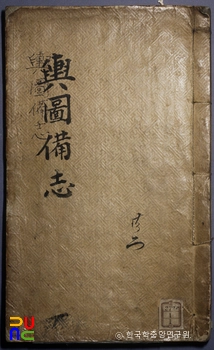 輿圖備志
輿圖備志
ⓒ 한국학중앙연구원